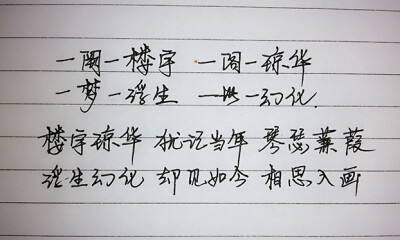 一一楼宇 一阁一琼华
一梦一浮生 一一幻化
楼宇琼华 犹记当年 琴瑟蒹葭
浮生幻化 却见如今 相思入画